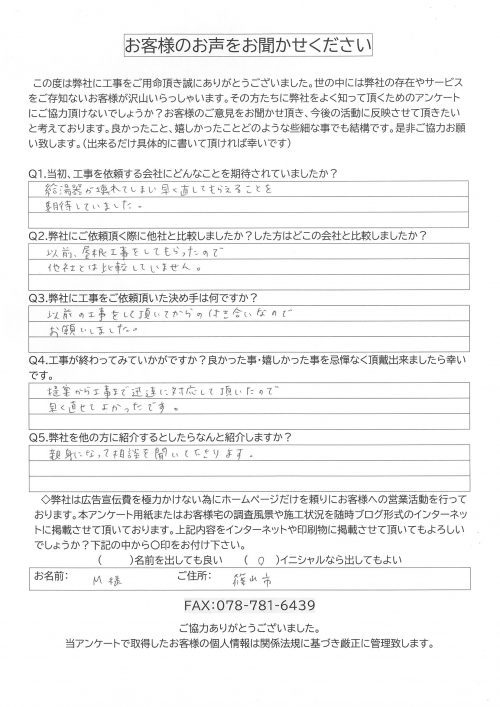 お客様のお声をお聞かせください
この度は弊社に工事をご用命頂き誠にありがとうございました。世の中には弊社の存在やサービス
をご存知ないお客様が沢山いらっしゃいます。その方たちに弊社をよく知って頂くためのアンケート
にご協力頂けないでしょうか?お客様のご意見をお聞かせ頂き、今後の活動に反映させて頂きたい
と考えております。良かったこと、嬉しかったことどのような些細な事でも結構です。是非ご協力お願
い致します。(出来るだけ具体的に書いて頂ければ幸いです)
Q1.当初、工事を依頼する会社にどんなことを期待されていましたか?
給湯器が壊れてしまい早く直してもらえることを
期待していました。
Q2.弊社にご依頼頂く際に他社と比較しましたか?した方はどこの会社と比較しましたか?
以前、屋根工事をしてもらったので
他社とは比較していません。
Q3.弊社に工事をご依頼頂いた決め手は何ですか?
以前の工事をして頂いてからのつき合いなので
お願いしました。
Q4.工事が終わってみていかがですか?良かった事・嬉しかった事を忌憚なく頂戴出来ましたら幸い
です。
提案から工事まで迅速に対応して頂いたので
早く直せてよかったです。
Q5.弊社を他の方に紹介するとしたらなんと紹介しますか?
親身になって相談を聞いてたきります。
◇弊社は広告宣伝費を極力かけない為にホームページだけを頼りにお客様への営業活動を行って
おります。本アンケート用紙またはお客様宅の調査風景や施工状況を随時ブログ形式のインターネッ
トに掲載させて頂いております。上記内容をインターネットや印刷物に掲載させて頂いてもよろしい
でしょうか?下記の中から〇印をお付け下さい。
( )名前を出しても良い ( 〇 )イニシャルなら出してもよい
お名前: M様 ご住所: 篠山市
FAX:078-781-6439
ご協力ありがとうございました。
当アンケートで取得したお客様の個人情報は関係法規に基づき厳正に管理致します。